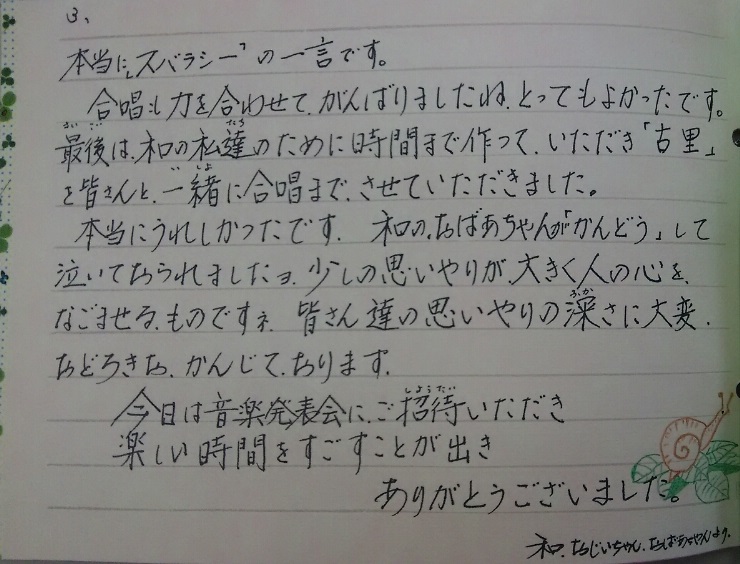 3、
本当に「スバラシー」の一言です。
合唱も力を合わせて、がんばりましたね、とってもよかったです。
最後は、和の私達のために時間まで作って、いただき「古里」
を皆さんと、一緒に合唱まで、させていただきました。
本当にうれしかったです、 和の、おばあちゃんが「かんどう」して
泣いておられましたヨ、少しの思いやりが、大きく人の心を、
なごませる、ものですネ、 皆さん達の思いやりの深さに大変、
おどろきお、かんじて、おります、
今日は音楽発表会に、ご招待いただき
楽しい時間をすごすことが出き
ありがとうございました。
和、おじいちゃん、おばあちゃんより、